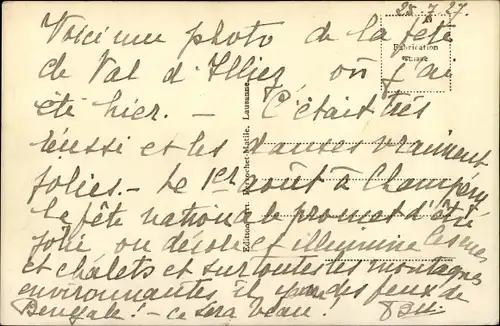 25.7.27.
Voici une photo de la fête
de Val d'Illiez où j'ai
été hier. - C'était très
réussi et les danses vraiment
jolies. - Le 1er août à Champéry
la fête nationale promet d'être
jolie on décore et illumine les rues
et châlets et sur toutes les montagnes
environnantes il y a des feux de
Bengale! - ce sera beau!
Fabrication
suisse
Edition Art. Perrochet-Matile, Lausanne